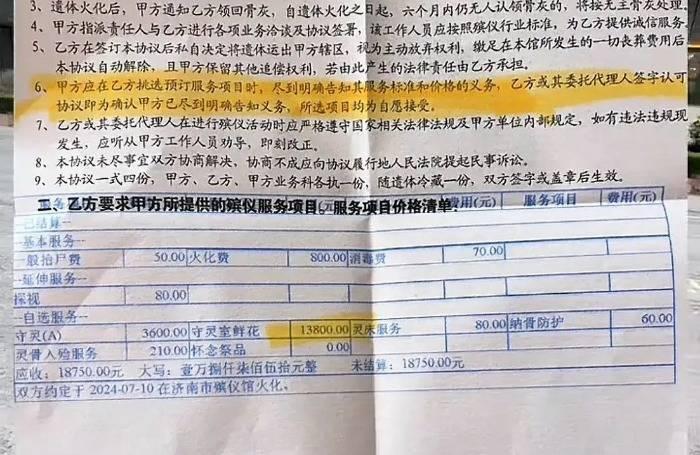 3、遗体火化后，甲方通知乙方领回骨灰，自遗体火化之日起，六个月内仍无人认领骨灰的，将按无主骨灰处
4、甲方指派责任人与乙方进行各项业务洽谈及协议签署，该工作人员应按照殡仪行业标准，为乙方提供诚信服务
5、乙方在签订本协议后私自决定将遗体运出甲方辖区，视为主动放弃权利，缴足在本馆所发生的一切丧葬费用后
本协议自动解除，且甲方保留其他追偿权利，若由此产生的法律责任由乙方承担。
6、甲方应在乙方挑选预订服务项目时，尽到明确告知其服务标准和价格的义务，乙方或其委托代理人签字认可
协议即为确认甲方已尽到明确告知义务，所选项目均为自愿接受。
7、乙方或其委托代理人在进行殡仪活动时应严格遵守国家相关法律法规及甲方单位内部规定，如有违法违规现
发生，应听从甲方工作人员劝导，即刻改正。
8、本协议未尽事宜双方协商解决，协商不成应向协议履行地人民法院提起民事诉讼。
9、本协议一式四份，甲方、乙方、甲方业务科各执一份，随遗体冷藏一份，双方签字或盖章后生效。
二、乙方要求甲方所提供的殡仪服务项目、服务项目价格清单：
费用(元) 服务项目 费用(元)
--已结算--
--基本服务--
一般抬尸费 50.00 火化费 800.00 消毒费 70.00
--延伸服务--
探视 80.00
--自选服务--
守灵(A) 3600.00 守灵室鲜花 13800.00 灵床服务 80.00 纳骨防护 60.00
灵骨入殓服务 210.00 怀念祭品 0.00
应收：18750.00元 大写：壹万捌仟柒佰伍拾元整 未结算：18750.00元
双方约定于 2024-07-10 在济南市殡仪馆火化。